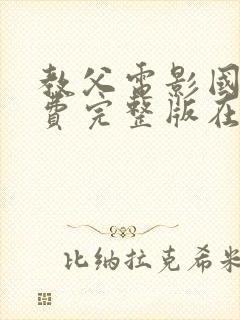 教父电影国
费完整版在
比纳拉克希米